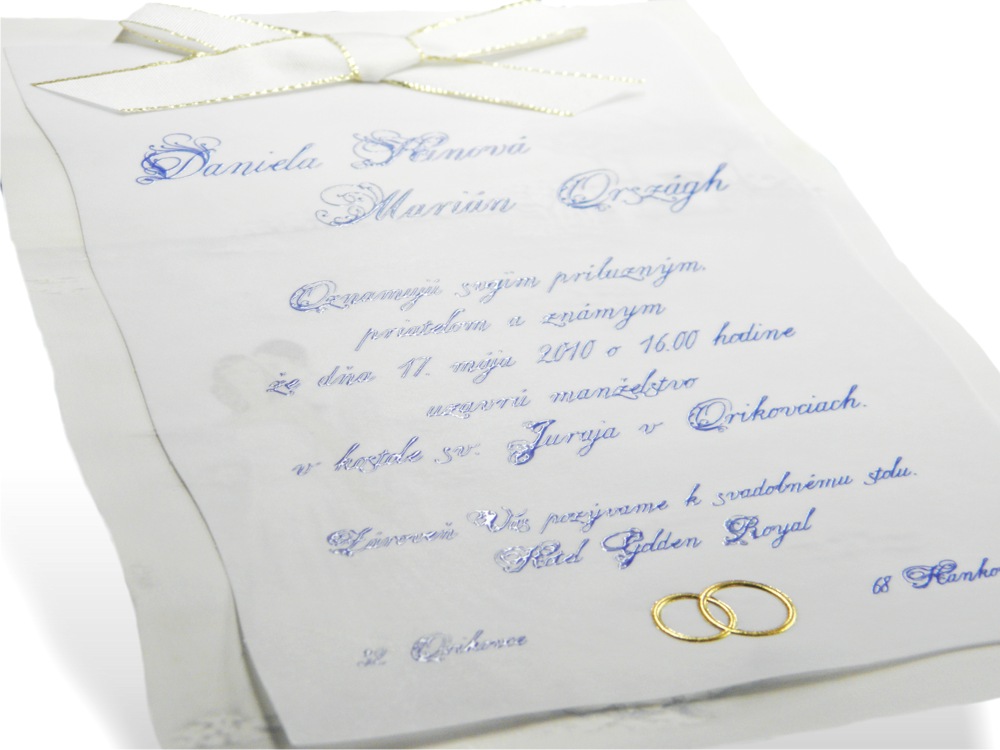 Daniela Hinová
Marián Országh
Oznamujú svojim príbuzným,
priateľom a známym
že dňa 17. mája 2010 o 16.00 hodine
uzavrú manželstvo
v kostole sv. Juraja v Orikovciach.
Zároveň Vás pozývame k svadobnému stolu.
Hotel Golden Royal
68 Hanko
32